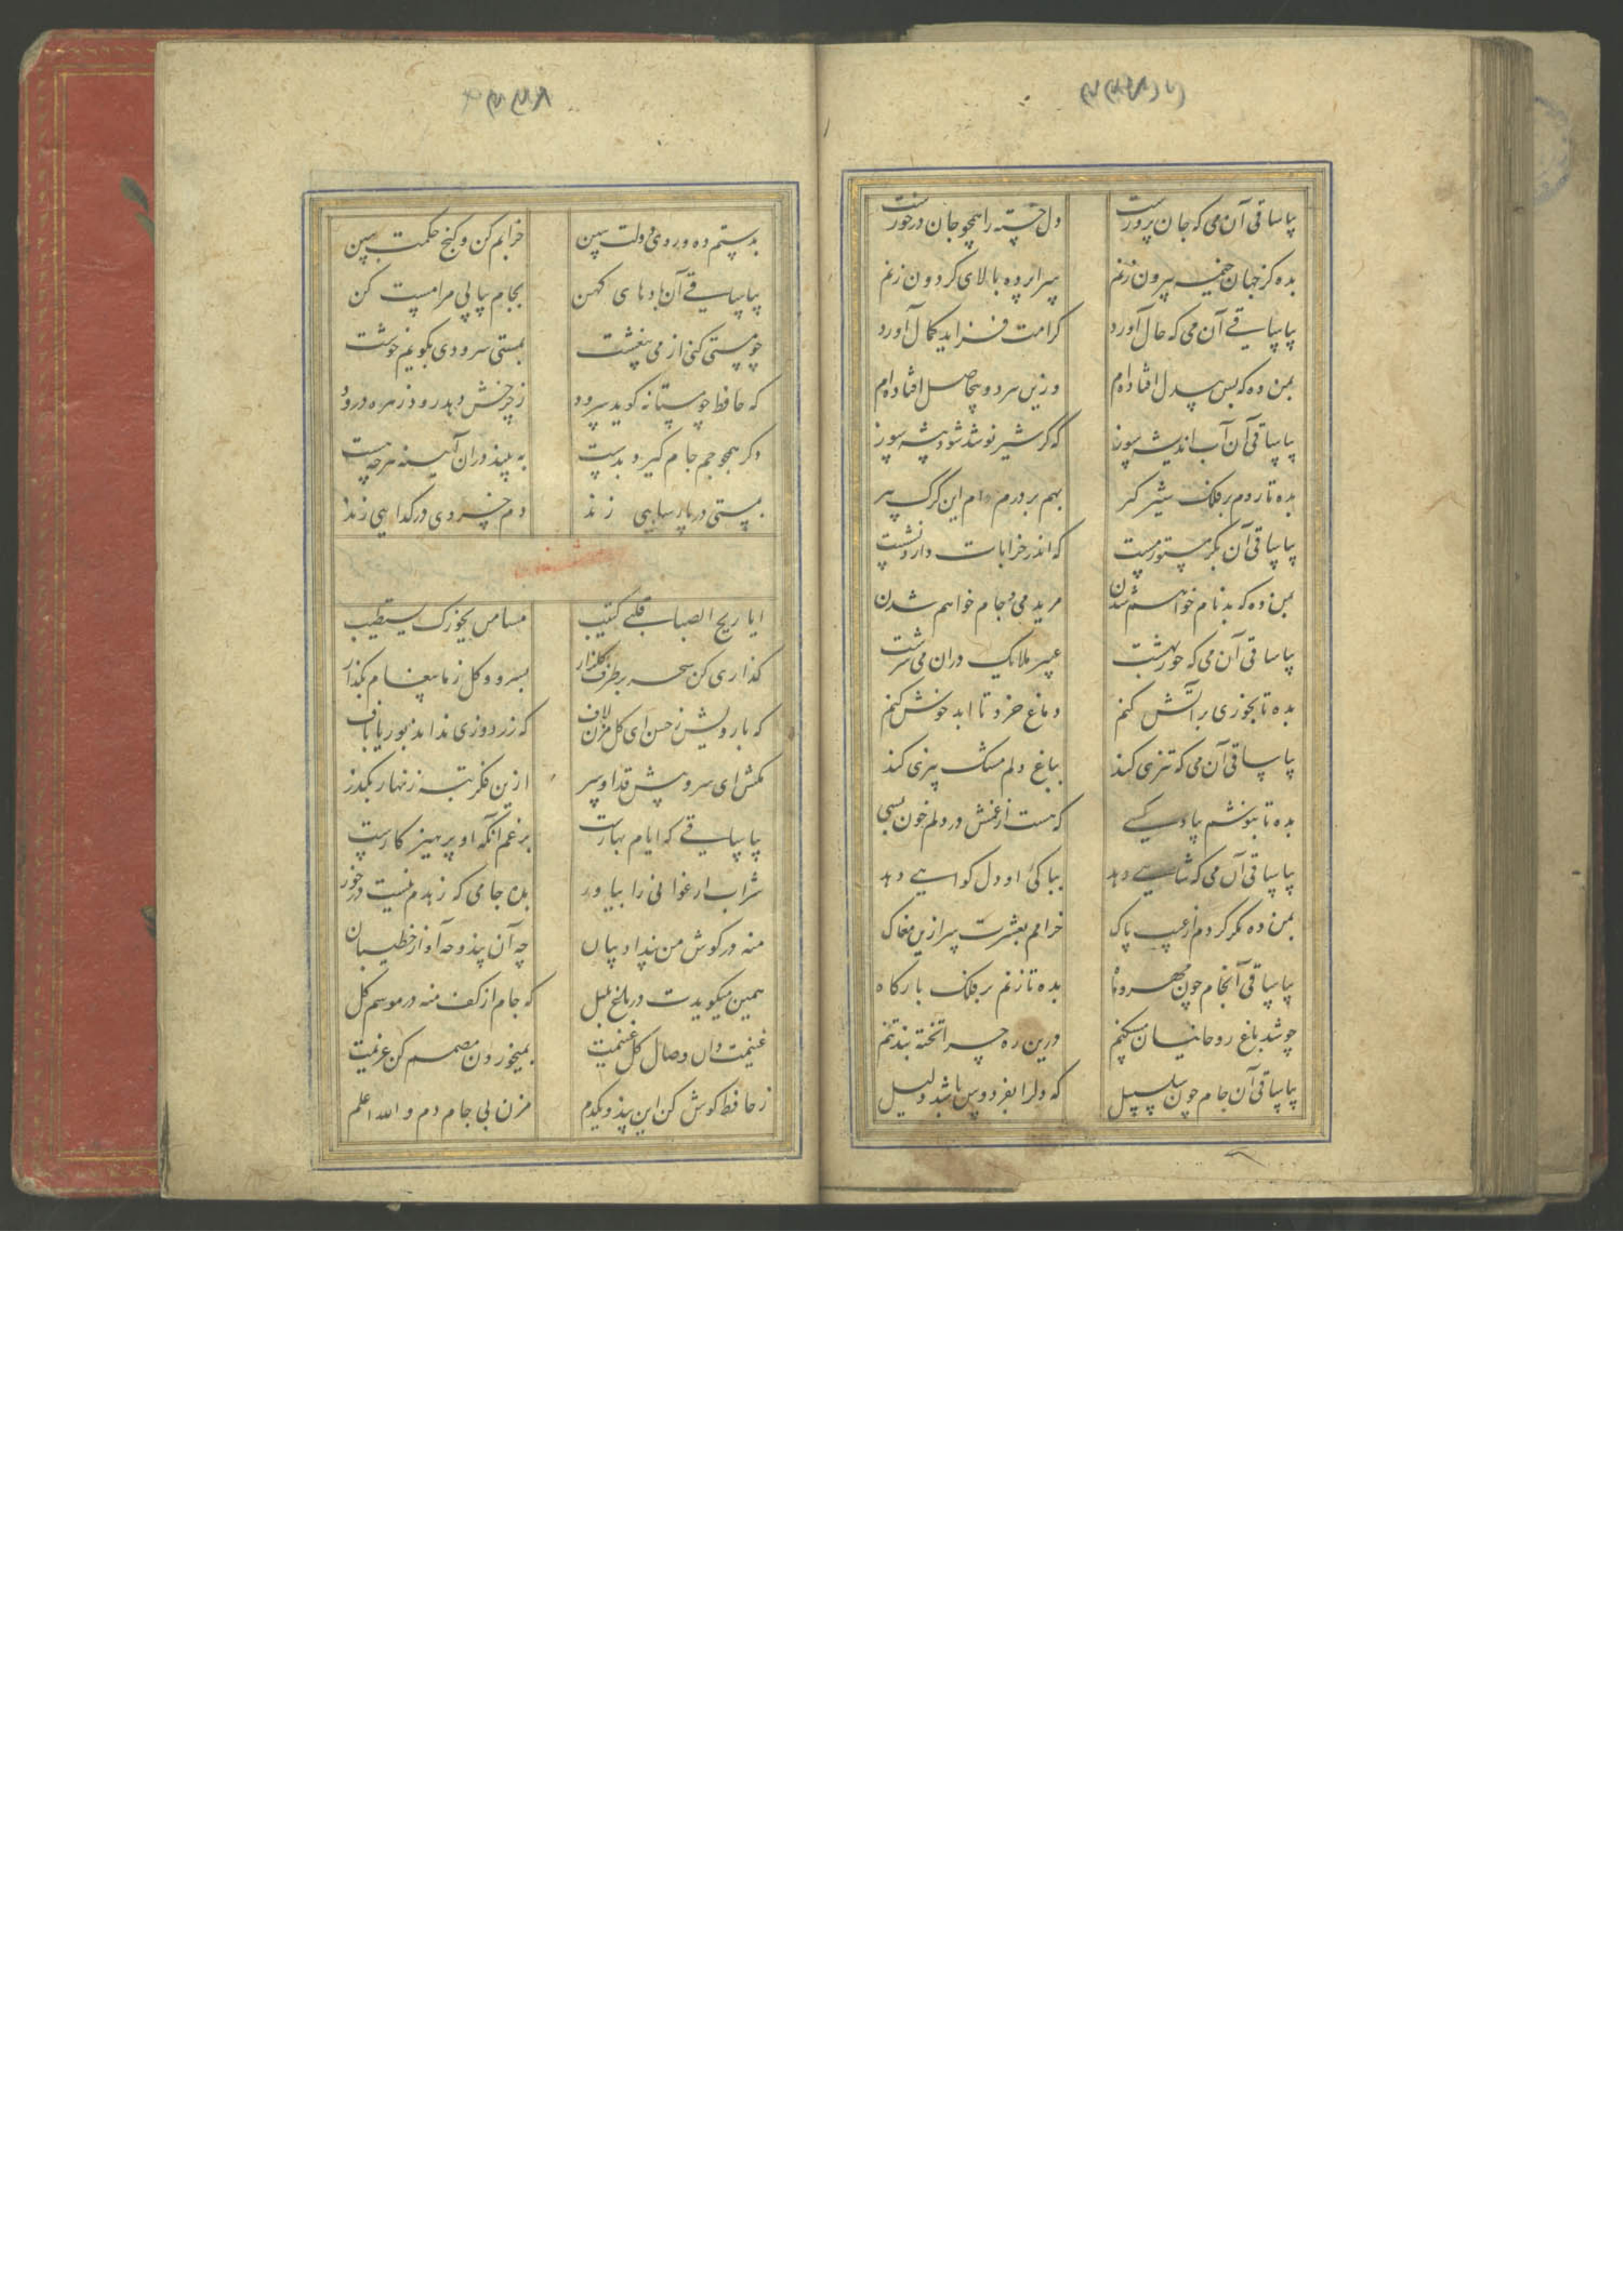 بیا ساقی آن می که جان پرورست دل خسته را همچو جان درخورست
بده کز جهان خیمه بیرون زنم سراپرده بالای گردون زنم
بیا ساقی آن می که حال آورد کرامت فزاید کمال آورد
بمن ده که بس بیدل افتاده‌ام وزین هر دو بیحاصل افتاده‌ام
بیا ساقی آن آب اندیشه سوز که گر شیر نوشد شود بیشه سوز
بده تا روم بر فلک شیر گیر بهم بر درم دام این گرگ پیر
بیا ساقی آن بکر مستور مست که اندر خرابات دارد نشست
بمن ده که بدنام خواهم شدن مرید می و جام خواهم شدن
بیا ساقی آن می که حور بهشت عبیر ملایک در آن می سرشت
بده تا بخوری بر آتش کنم دماغ خرد تا ابد خوش کنم
بیا ساقی آن می که تیزی کند بباغ دلم مشک بیزی کند
بده تا بنوشم بیاد کسی که هست از غمش در دلم خون بسی
بیا ساقی آن می که شاهی دهد بپاکی او دل گواهی دهد
بمن ده مگر گردم از عیب پاک خرامم بعشرت سر ازین مغاک
بیا ساقی آن جام چون مهر و ماه بده تا زنم بر فلک بارگاه
چو شد باغ روحانیان مسکنم درین ره چرا تخته بند تنم
بیا ساقی آن جام چون سلسبیل که دل را بفردوس باشد دلیل
بدستم ده و روی دولت ببین خرابم کن و گنج حکمت ببین
بیا ساقی آن باده‌های کهن بجام پیاپی مرا مست کن
چو مستی کنی از می بیغشت بمستی سرودی بگویم خوشت
که حافظ چو مستانه گوید سرود ز چرخش دهد رود زهره درود
دگر همچو جم جام گیرد بدست به بیند در آن آینه هرچه هست
بمستی در پارسایی زند دم خسروی در گدایی زند
ایا ریح الصبا قلبی کئیب مشامس بخورک یستطیب
گذاری کن سحر بر طرف گلزار بسرو و گل ز ما پیغام بگذار
که با رویش ز حسن ای گل مزن لاف که زردوزی نداند بوریا باف
مکش ای سرو پیش قد او سر ازین فکر تبه زنهار بگذر
بیا ساقی که ایام بهارست برغم آنکه او پرهیز کارست
شراب ارغوانی را بیاور بده جامی که زهدم نیست درخور
منه در گوش من پند ادیبان چه آن پند و چه آواز خطیبان
همین میگویدت در باغ بلبل که جام از کف منه در موسم گل
غنیمت دان وصال گل غنیمت بمیخوردن مصمم کن عزیمت
ز حافظ گوش کن این پند و یکدم مزن بی جام دم والله اعلم